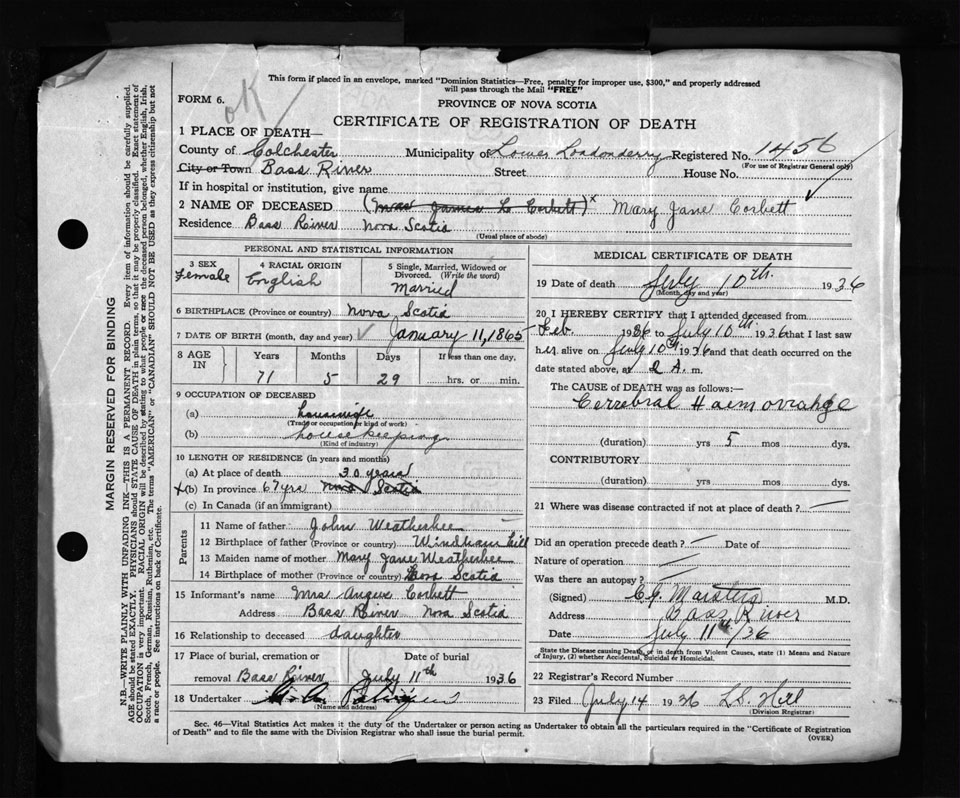 This form if placed in an envelope, marked "Dominion Statistics—Free, penalty for improper use, $300," and properly addressed
will pass through the Mail "FREE"
FORM 6.
OK
PROVINCE OF NOVA SCOTIA
CERTIFICATE OF REGISTRATION OF DEATH
1 PLACE OF DEATH—
County of Colchester Municipality of Lower Londonderry Registered No. 1456
(For use of Registrar General only)
City or Town Bass River Street House No.
If in hospital or institution, give name
2 NAME OF DECEASED (Mrs James L Corbett) x Mary Jane Corbett
Residence Bass River Nova Scotia
(Usual place of abode)
PERSONAL AND STATISTICAL INFORMATION
3 SEX Female
4 RACIAL ORIGIN English
5 Single, Married, Widowed or Divorced. (Write the word) Married
6 BIRTHPLACE (Province or country) Nova Scotia
7 DATE OF BIRTH (month, day and year) January 11, 1865
8 AGE IN Years Months Days If less than one day,
71 5 29 hrs. or min.
9 OCCUPATION OF DECEASED
(a) housewife
(Trade or occupation or kind of work)
(b) housekeeping
(Kind of industry)
10 LENGTH OF RESIDENCE (in years and months)
(a) At place of death 30 years
x(b) In province 67 yrs Nova Scotia
(c) In Canada (if an immigrant)
Parents
11 Name of father John Weatherbee
12 Birthplace of father (Province or country) Windham Hill
13 Maiden name of mother Mary Jane Weatherbee
14 Birthplace of mother (Province or country) Nova Scotia
15 Informant's name Mrs Angus Corbett
Address Bass River Nova Scotia
16 Relationship to deceased daughter
17 Place of burial, cremation or Date of burial
removal Bass River July 11th 1936
18 Undertaker
(Name and address)
MEDICAL CERTIFICATE OF DEATH
19 Date of death July 10th. 1936
(Month, day and year)
20 I HEREBY CERTIFY that I attended deceased from
Feb 1936 to July 10th 1936 that I last saw
her alive on July 10th 1936 and that death occurred on
date stated above, at 2 A. m.
The CAUSE of DEATH was as follows:—
Cerrebral Haemorrahge
(duration) yrs 5 mos. dys.
CONTRIBUTORY
(duration) yrs. mos. dys.
21 Where was disease contracted if not at place of death?
Did an operation precede death? Date of
Nature of operation
Was there an autopsy?
(Signed) M.D.
Address Bass River
Date July 11th/36
State the Disease causing Death, or in death from Violent Causes, state (1) Means and Nature
of Injury, (2) whether Accidental, Suicidal or Homicidal.
22 Registrar's Record Number
23 Filed July 14 1936 L.S. Hill
(Division Registrar)
Sec. 46—Vital Statistics Act makes it the duty of the Undertaker or person acting as Undertaker to obtain all the particulars required in the "Certificate of Registration
of Death" and to file the same with the Division Registrar who shall issue the burial permit. (OVER)
MARGIN RESERVED FOR BINDING
N.B.—WRITE PLAINLY WITH UNFADING INK—THIS IS A PERMANENT RECORD. Every item of information should be carefully supplied.
AGE should be stated EXACTLY. PHYSICIANS should STATE CAUSE OF DEATH in plain terms, so that it may be properly classified. Exact statement of
OCCUPATION is very important. RACIAL ORIGIN will be described by stating to what people or race the deceased person belonged, whether English, Irish,
Scotch, French, German, Russian, Ruthenian, etc. The terms "AMERICAN" or "CANADIAN" SHOULD NOT BE USED as they express citizenship but not
a race or people. See instructions on back of Certificate.